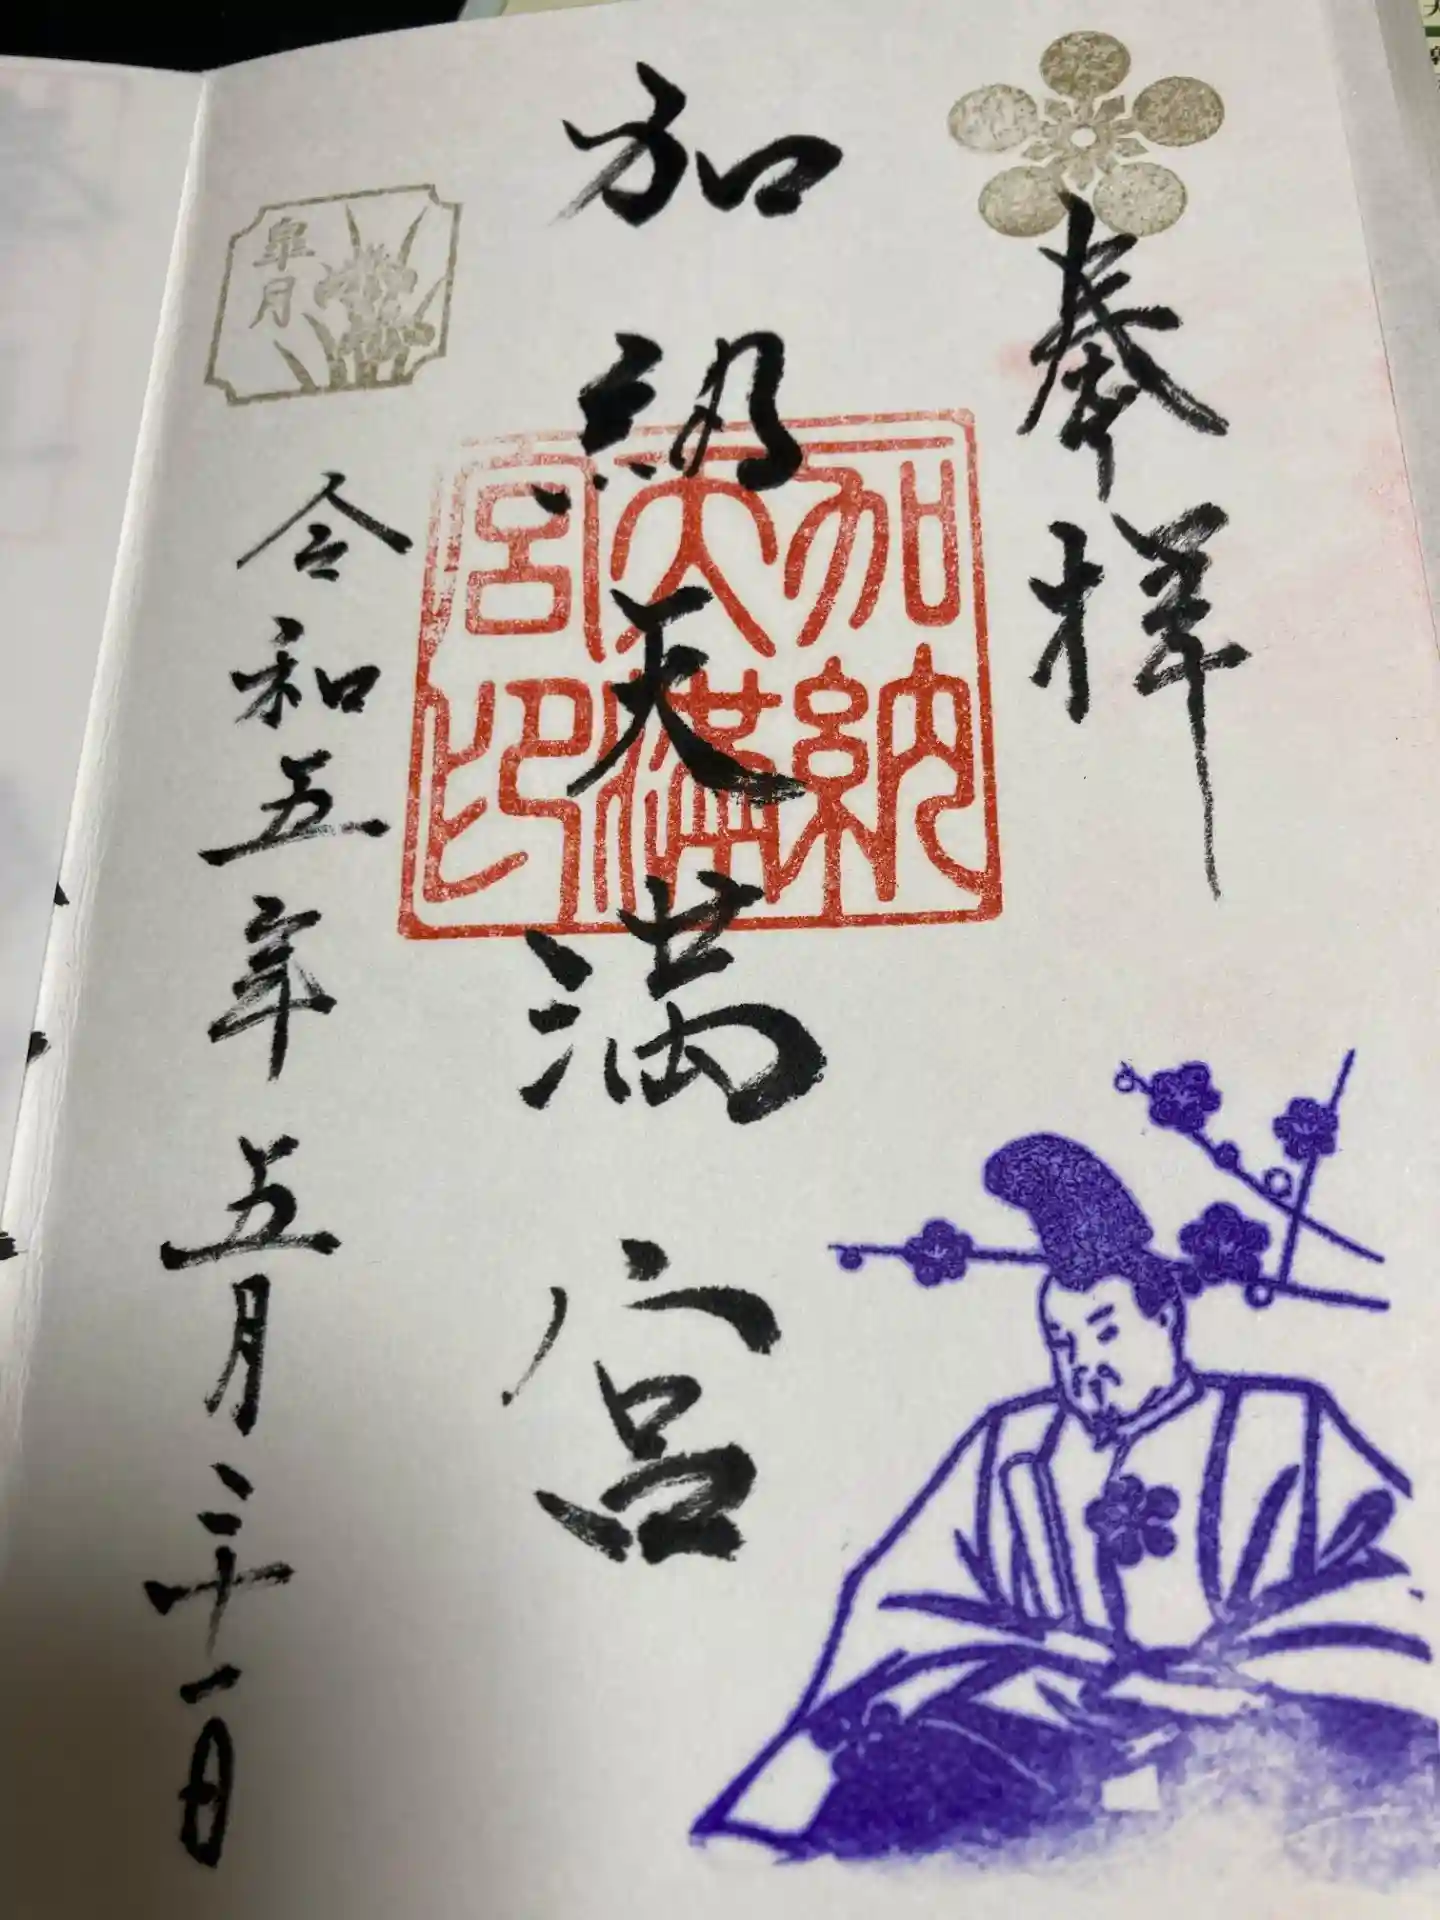 奉拝
加納天満宮
加納
天満
宮印
皐月
令和五年五月三十一日